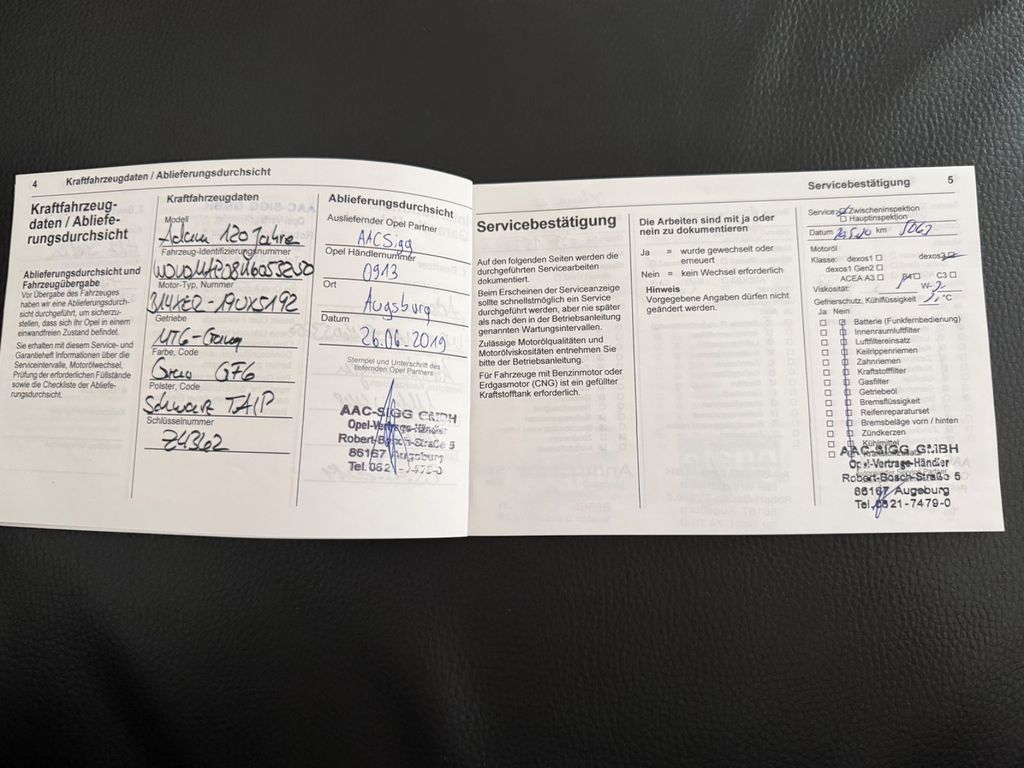 4 Kraftfahrzeugdaten / Ablieferungsdurchsicht
Kraftfahrzeug-
daten / Abliefe-
rungsdurchsicht
Ablieferungsdurchsicht und
Fahrzeugübergabe
Vor Übergabe des Fahrzeuges
haben wir eine Ablieferungsdurch-
sicht durchgeführt, um sicherzu-
stellen, dass sich Ihr Opel in einem
einwandfreien Zustand befindet.
Sie erhalten mit diesem Service- und
Garantieheft Informationen über die
Serviceintervalle, Motorölwechsel,
Prüfung der erforderlichen Füllstände
sowie die Checkliste der Abliefe-
rungsdurchsicht.
Kraftfahrzeugdaten
Modell
Adam 120 Jahre
Fahrzeug-Identifizierungsnummer
Motor-Typ, Nummer
Getriebe
Farbe, Code
GF6
Polster, Code
Schwarz TAIP
Schlüsselnummer
Ablieferungsdurchsicht
Ausliefernder Opel Partner
AACSigg
Opel Händlernummer
0913
Ort
Augsburg
Datum
26.06.2019
Stempel und Unterschrift des
liefernden Opel Partners
AAC-SIGG GMBH
Opel-Vertrags-Händler
Robert-Bosch-Straße 5
86167 Augsburg
Tel. 0821-7479-0
Servicebestätigung 5
Servicebestätigung
Auf den folgenden Seiten werden die
durchgeführten Servicearbeiten
dokumentiert.
Beim Erscheinen der Serviceanzeige
sollte schnellstmöglich ein Service
durchgeführt werden, aber nie später
als nach den in der Betriebsanleitung
genannten Wartungsintervallen.
Zulässige Motorölqualitäten und
Motorölviskositäten entnehmen Sie
bitte der Betriebsanleitung.
Für Fahrzeuge mit Benzinmotor oder
Erdgasmotor (CNG) ist ein gefüllter
Kraftstofftank erforderlich.
Die Arbeiten sind mit ja oder
nein zu dokumentieren
Ja = wurde gewechselt oder
erneuert
Nein = kein Wechsel erforderlich
Hinweis
Vorgegebene Angaben dürfen nicht
geändert werden.
Service: Zwischeninspektion
Hauptinspektion
Datum km
Motoröl
Klasse: dexos1 dexos2
dexos1 Gen2
ACEA A3 C3
Viskosität: W-
Gefrierschutz, Kühlflüssigkeit °C
Ja Nein
Batterie (Funkfernbedienung)
Innenraumluftfilter
Luftfiltereinsatz
Keilrippenriemen
Zahnriemen
Kraftstofffilter
Gasfilter
Getriebeöl
Bremsflüssigkeit
Reifenreparaturset
Bremsbeläge vorn / hinten
Zündkerzen
Kühlmittel
AAC-SIGG GMBH
Opel-Vertrags-Händler
Robert-Bosch-Straße 5
86167 Augsburg
Tel. 0821-7479-0